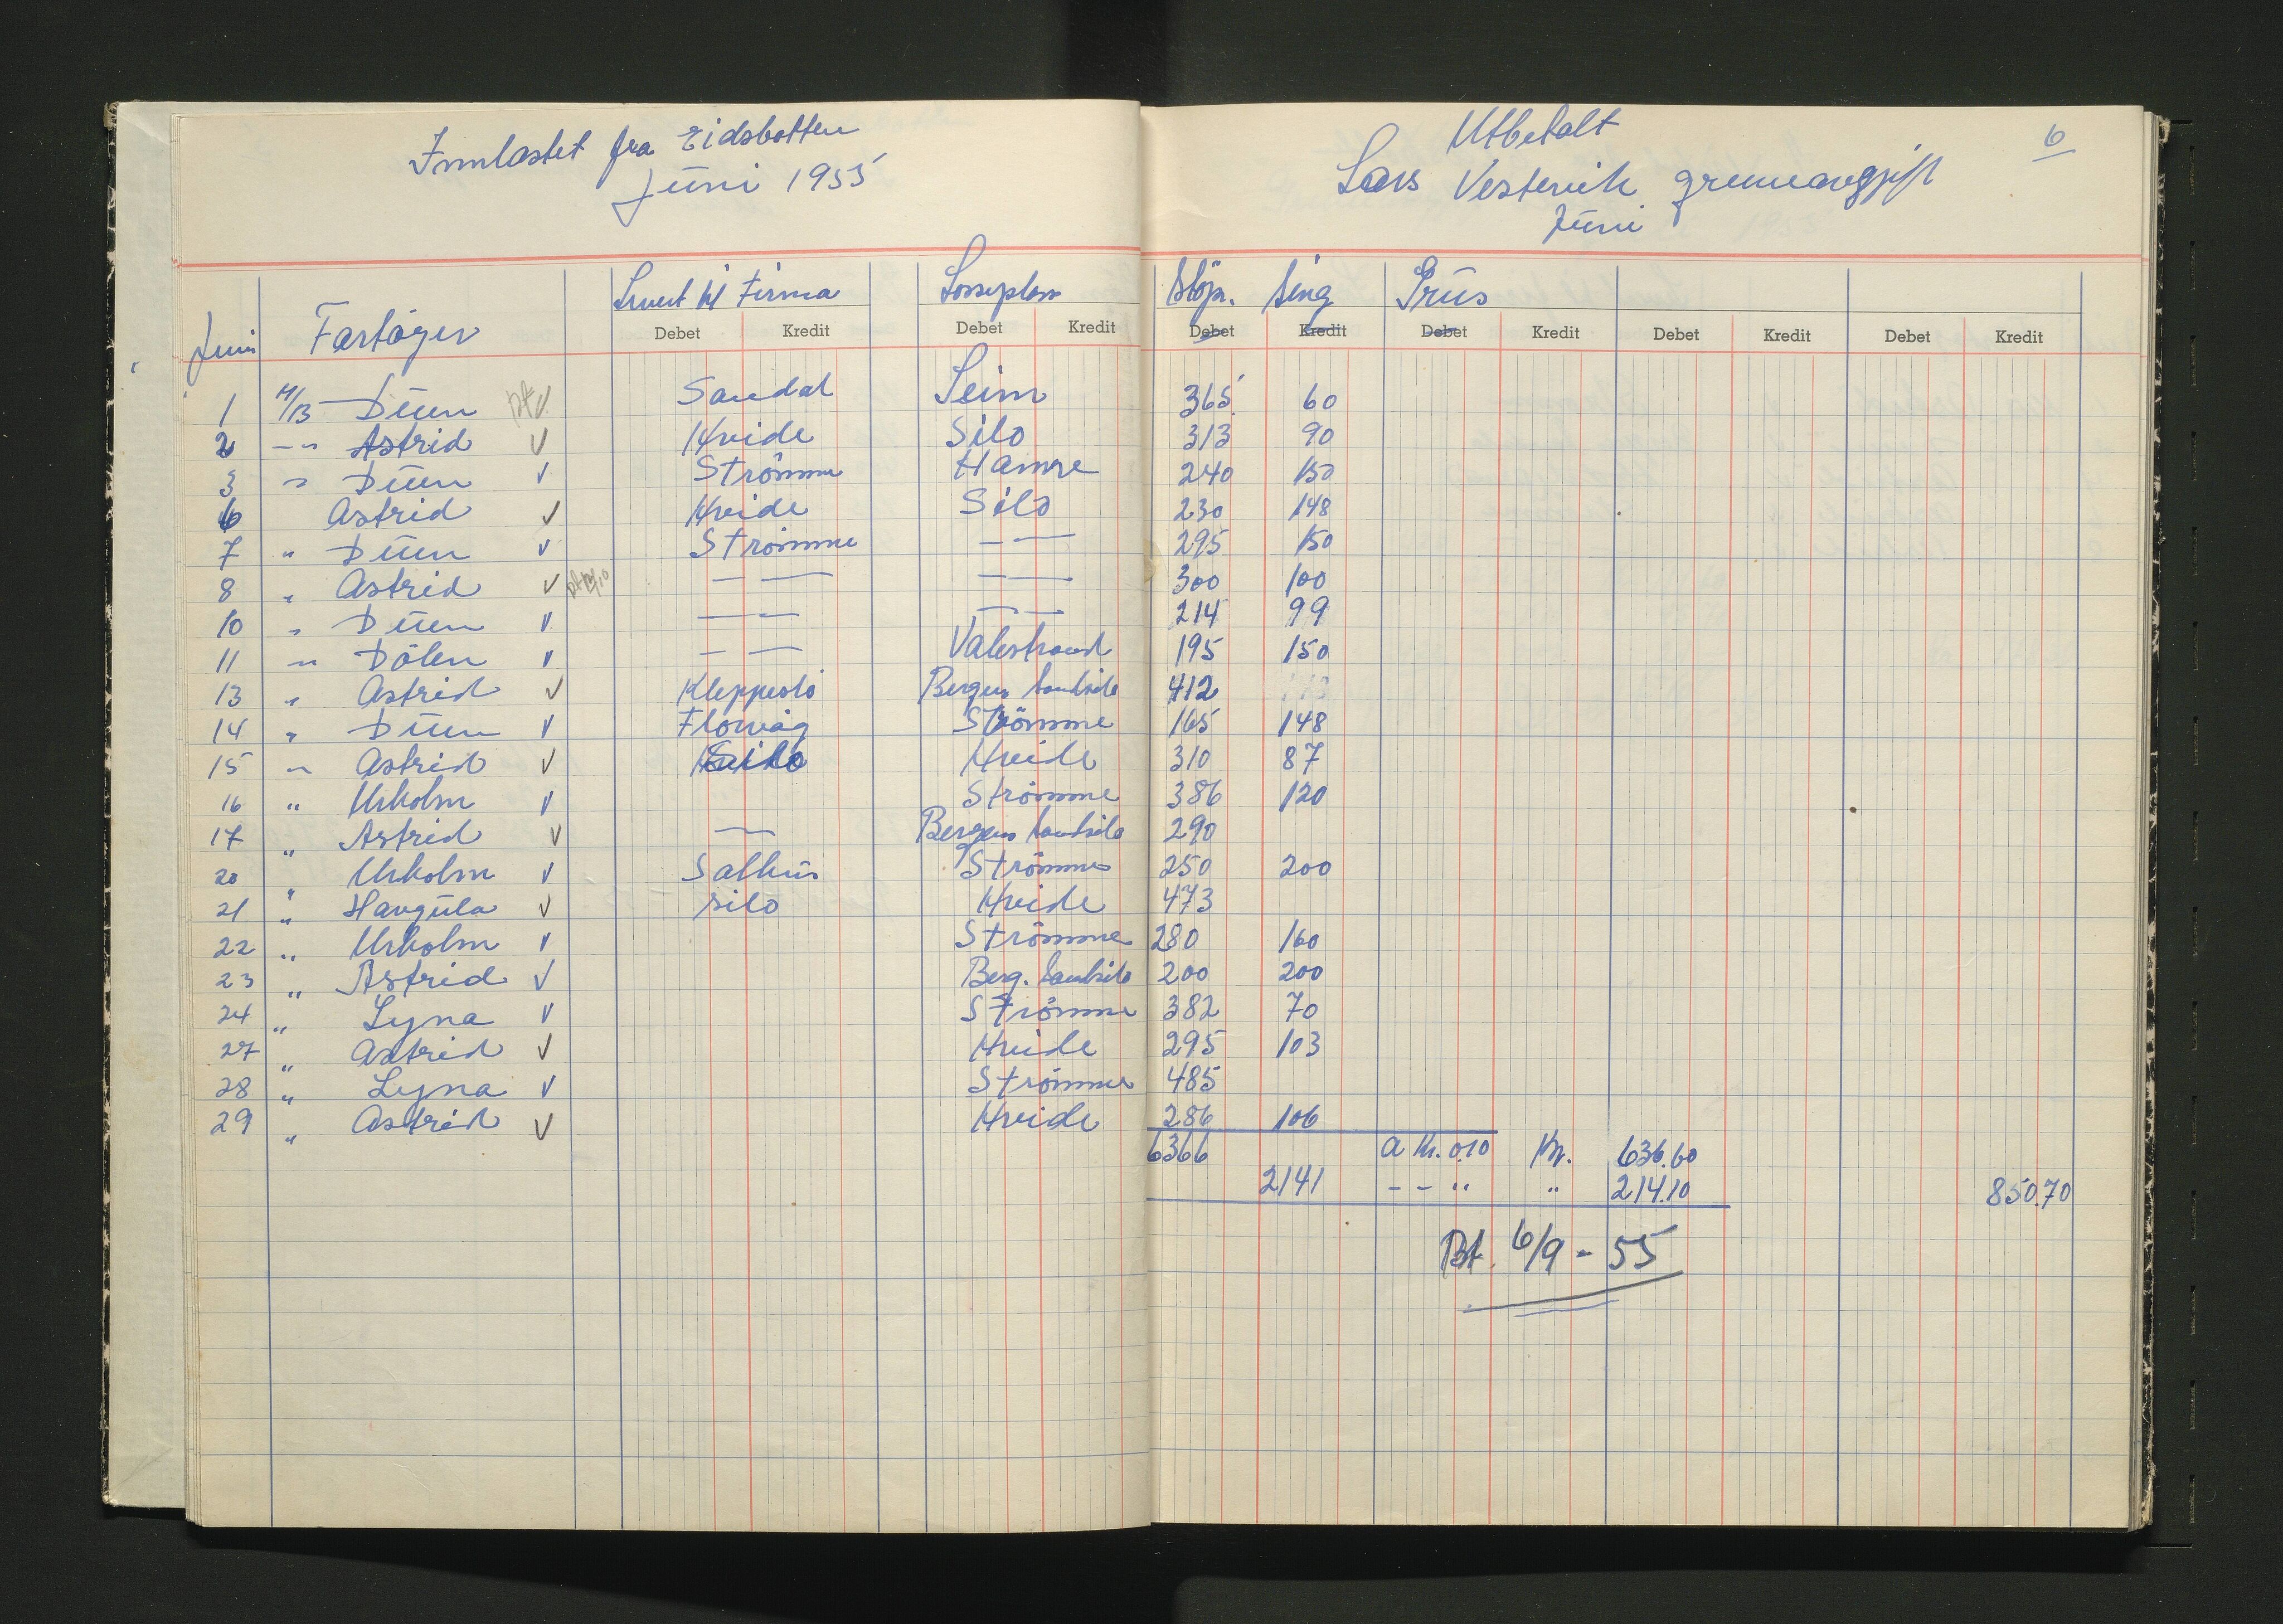 Innlastet fra Eidsbotten
Juni 1955
Juni Fartöyer Levert til Firma Losseplass
Debet Kredit Debet Kredit
1 M/B Duen V. Sandal Seim
2 -"- Astrid V Hvide Silo
3 " Duen V Strömme Hamre
6 Astrid V Hvide Silo
7 " Duen V Strömme — —
8 " Astrid V — — — —
10 " Duen V — — — —
11 -"- Dölen V — — Valestrand
13 " Astrid V Kleppestö Bergens Sandsilo
14 " Duen V Florvåg Strömme
15 -"- Astrid V Hvide
16 " Urholm V Strömme
17 " Astrid V — Bergens Sandsilo
20 " Urholm V Salhus Strömme
21 " Havgula V Silo Hvide
22 " Urholm V Strömme
23 " Astrid V Berg. Sandsilo
24 " Lyna V Strömme
27 " Astrid V Hvide
28 " Lyna V Strömme
29 " Astrid V Hvide
6
Utbetalt
Lars Vestervik grunnavgift
Juni
Stöp. Sing Grus
Debet Kredit Debet Kredit Debet Kredit Debet Kredit
365 60
313 90
240 150
230 148
295 150
300 100
214 99
195 150
412
165 148
310 87
386 120
290
250 200
473
280 160
200 200
382 70
295 103
485
286 106
6366 a Kr. 0.10 Kr. 636.60
2141 - - " " 214.10 850.70
Bt. 6/9 - 55